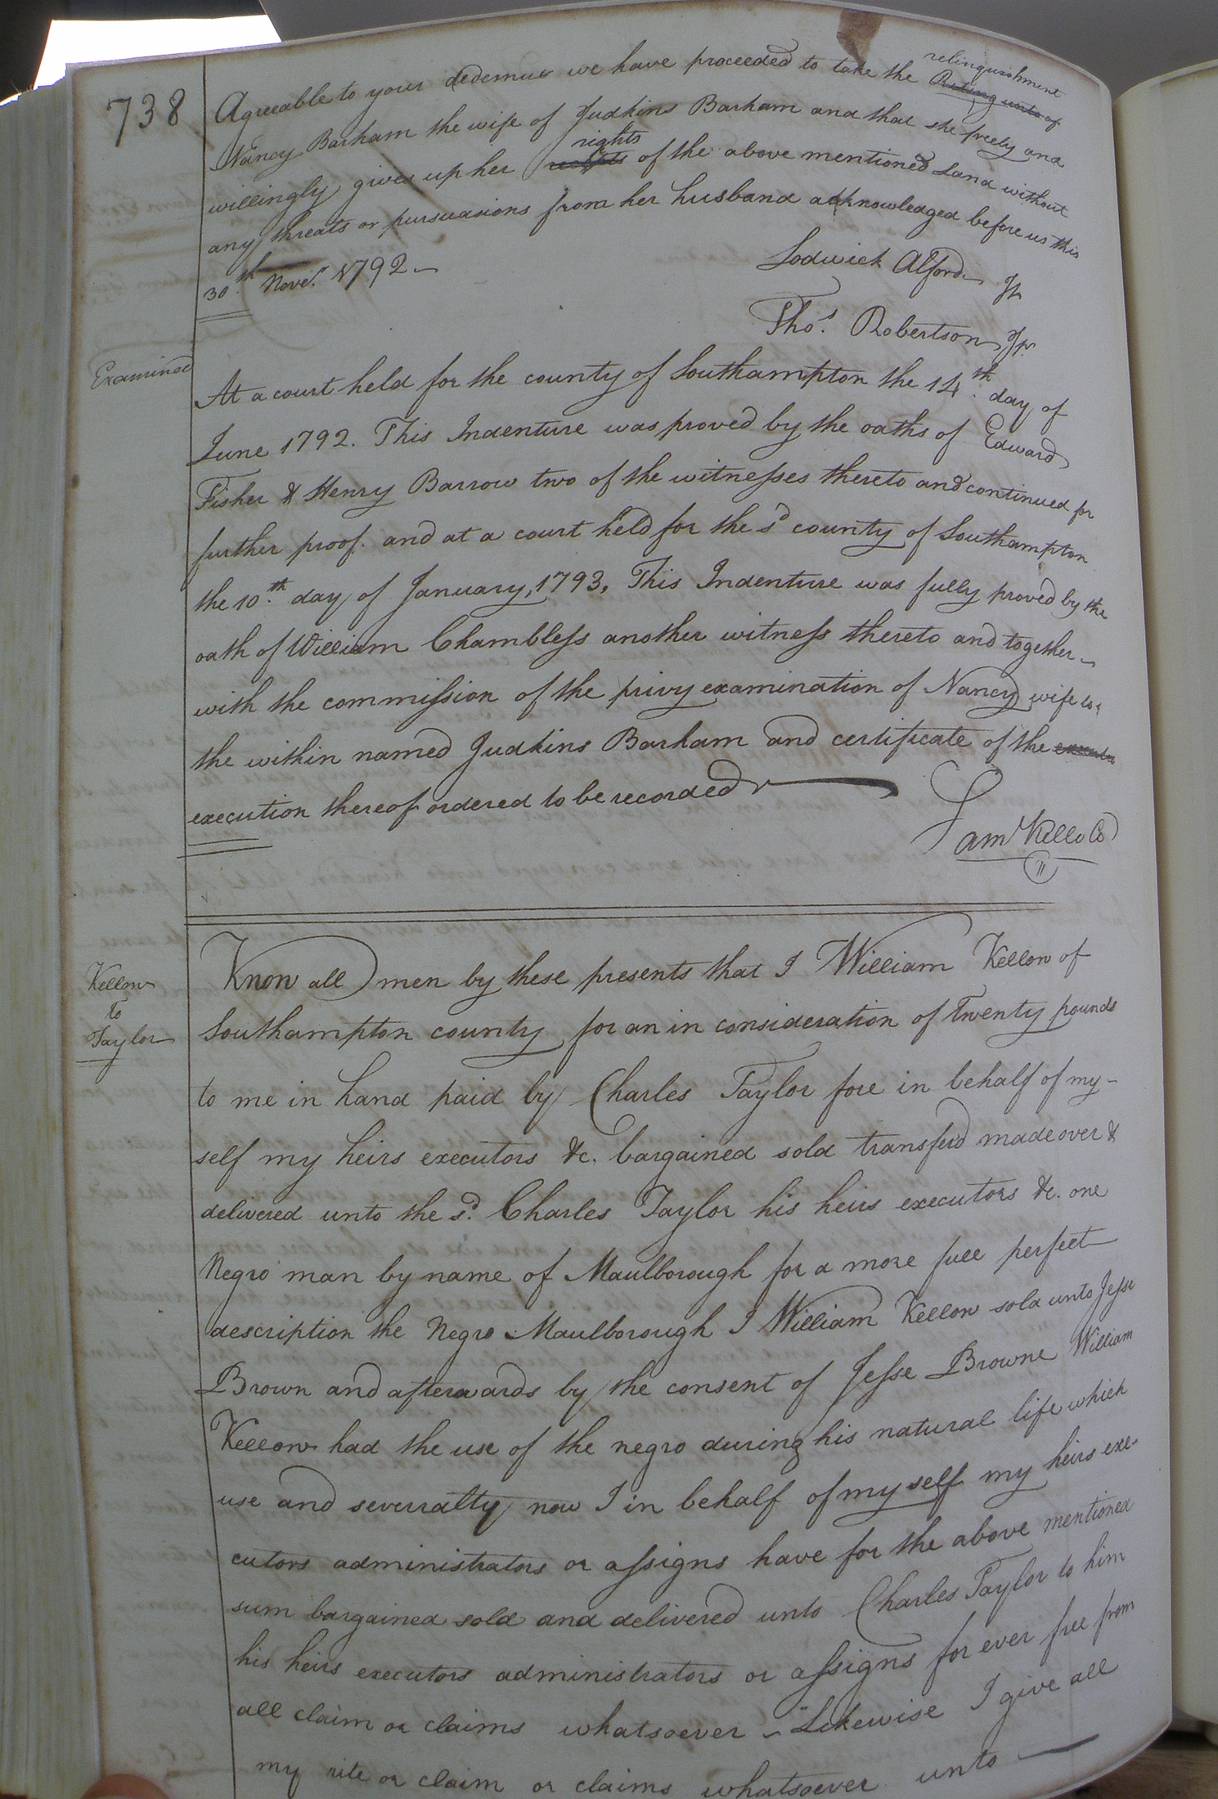 738
relinquishment
Agreeable to your dedemus we have proceeded to take the
Nancy Barham the wife of Judkins Barham and that she freely and
rights
willingly gives up her of the above mentioned Land without
any threats or pursuasions from her husband acknowledged before us this
30.th Novr. 1792
Lodwick Alford Jr
Thos. Robertson Jr
Examined
At a court held for the county of Southampton the 14.th day of
June 1792. This Indenture was proved by the oaths of Edward
Fisher & Henry Barrow two of the witnesses thereto and continued for
further proof. and at a court held for the sd county of Southampton
the 10.th day of January, 1793, This Indenture was fully proved by the
oath of William Chambless another witness thereto and together
with the commission of the privy examination of Nancy wife to
the within named Judkins Barham and certificate of the
execution thereof ordered to be recorded
Saml Kello Cl
Kellow
to
Taylor
Know all men by these presents that I William Kellow of
Southampton county for an in consideration of Twenty pounds
to me in hand paid by Charles Taylor fore in behalf of my-
self my heirs executors &c. bargained sold transferd made over &
delivered unto the sd. Charles Taylor his heirs executors &c. one
Negro man by name of Maulborough for a more full perfect
description the Negro Maulborough I William Kellow sold unto Jesse
Brown and afterwards by the consent of Jesse Browne William
Kellow had the use of the negro during his natural life which
use and severralty now I in behalf of my self my heirs exe-
cutors administrators or assigns have for the above mentioned
sum bargained sold and delivered unto Charles Taylor to him
his heirs executors administrators or assigns for ever free from
all claim or claims whatsoever - Likewise I give all
my rite or claim or claims whatsoever unto